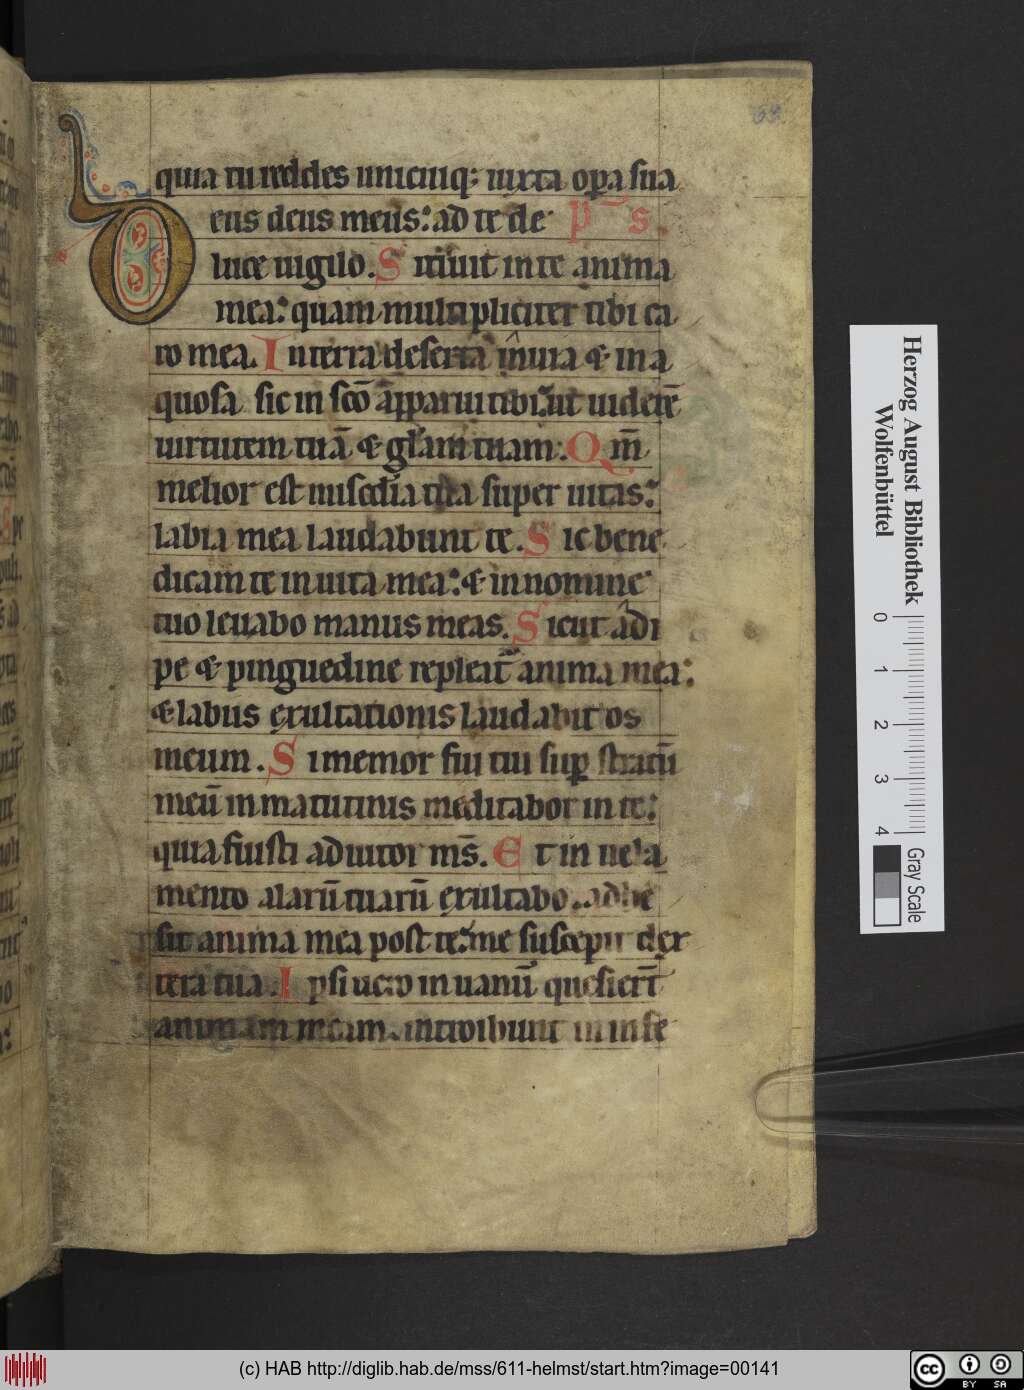 63
quia tu reddes unicuiq; iuxta opa sua
Deus deus meus: ad te de ps
luce uigilo. Sitiuit in te anima
mea: quam multipliciter tibi ca
ro mea. In terra deserta inuia & in a
quosa sic in scō apparui tibi: ut uiderē
uirtutem tuā & głam tuam: Qm̄
melior est misc̄dia tua super uitas:
labia mea laudabunt te. Sic bene
dicam te in uita mea: & in nomine
tuo leuabo manus meas. Sicut adi
pe & pinguedine repleat̄ anima mea:
& labiis exultationis laudabit os
meum. Si memor fui tui sup stratū
meū in matutinis meditabor in te:
quia fuisti adiutor ms̄. Et in uela
mento alarū tuarū exultabo. adhe
sit anima mea post te: me suscepit dex
tera tua. Ipsi uero in uanū quesiert̄
animam meam. introibunt in infe
Herzog August Bibliothek
Wolfenbüttel
0 1 2 3 4
Gray Scale
(c) HAB http://diglib.hab.de/mss/611-helmst/start.htm?image=00141
cc BY SA